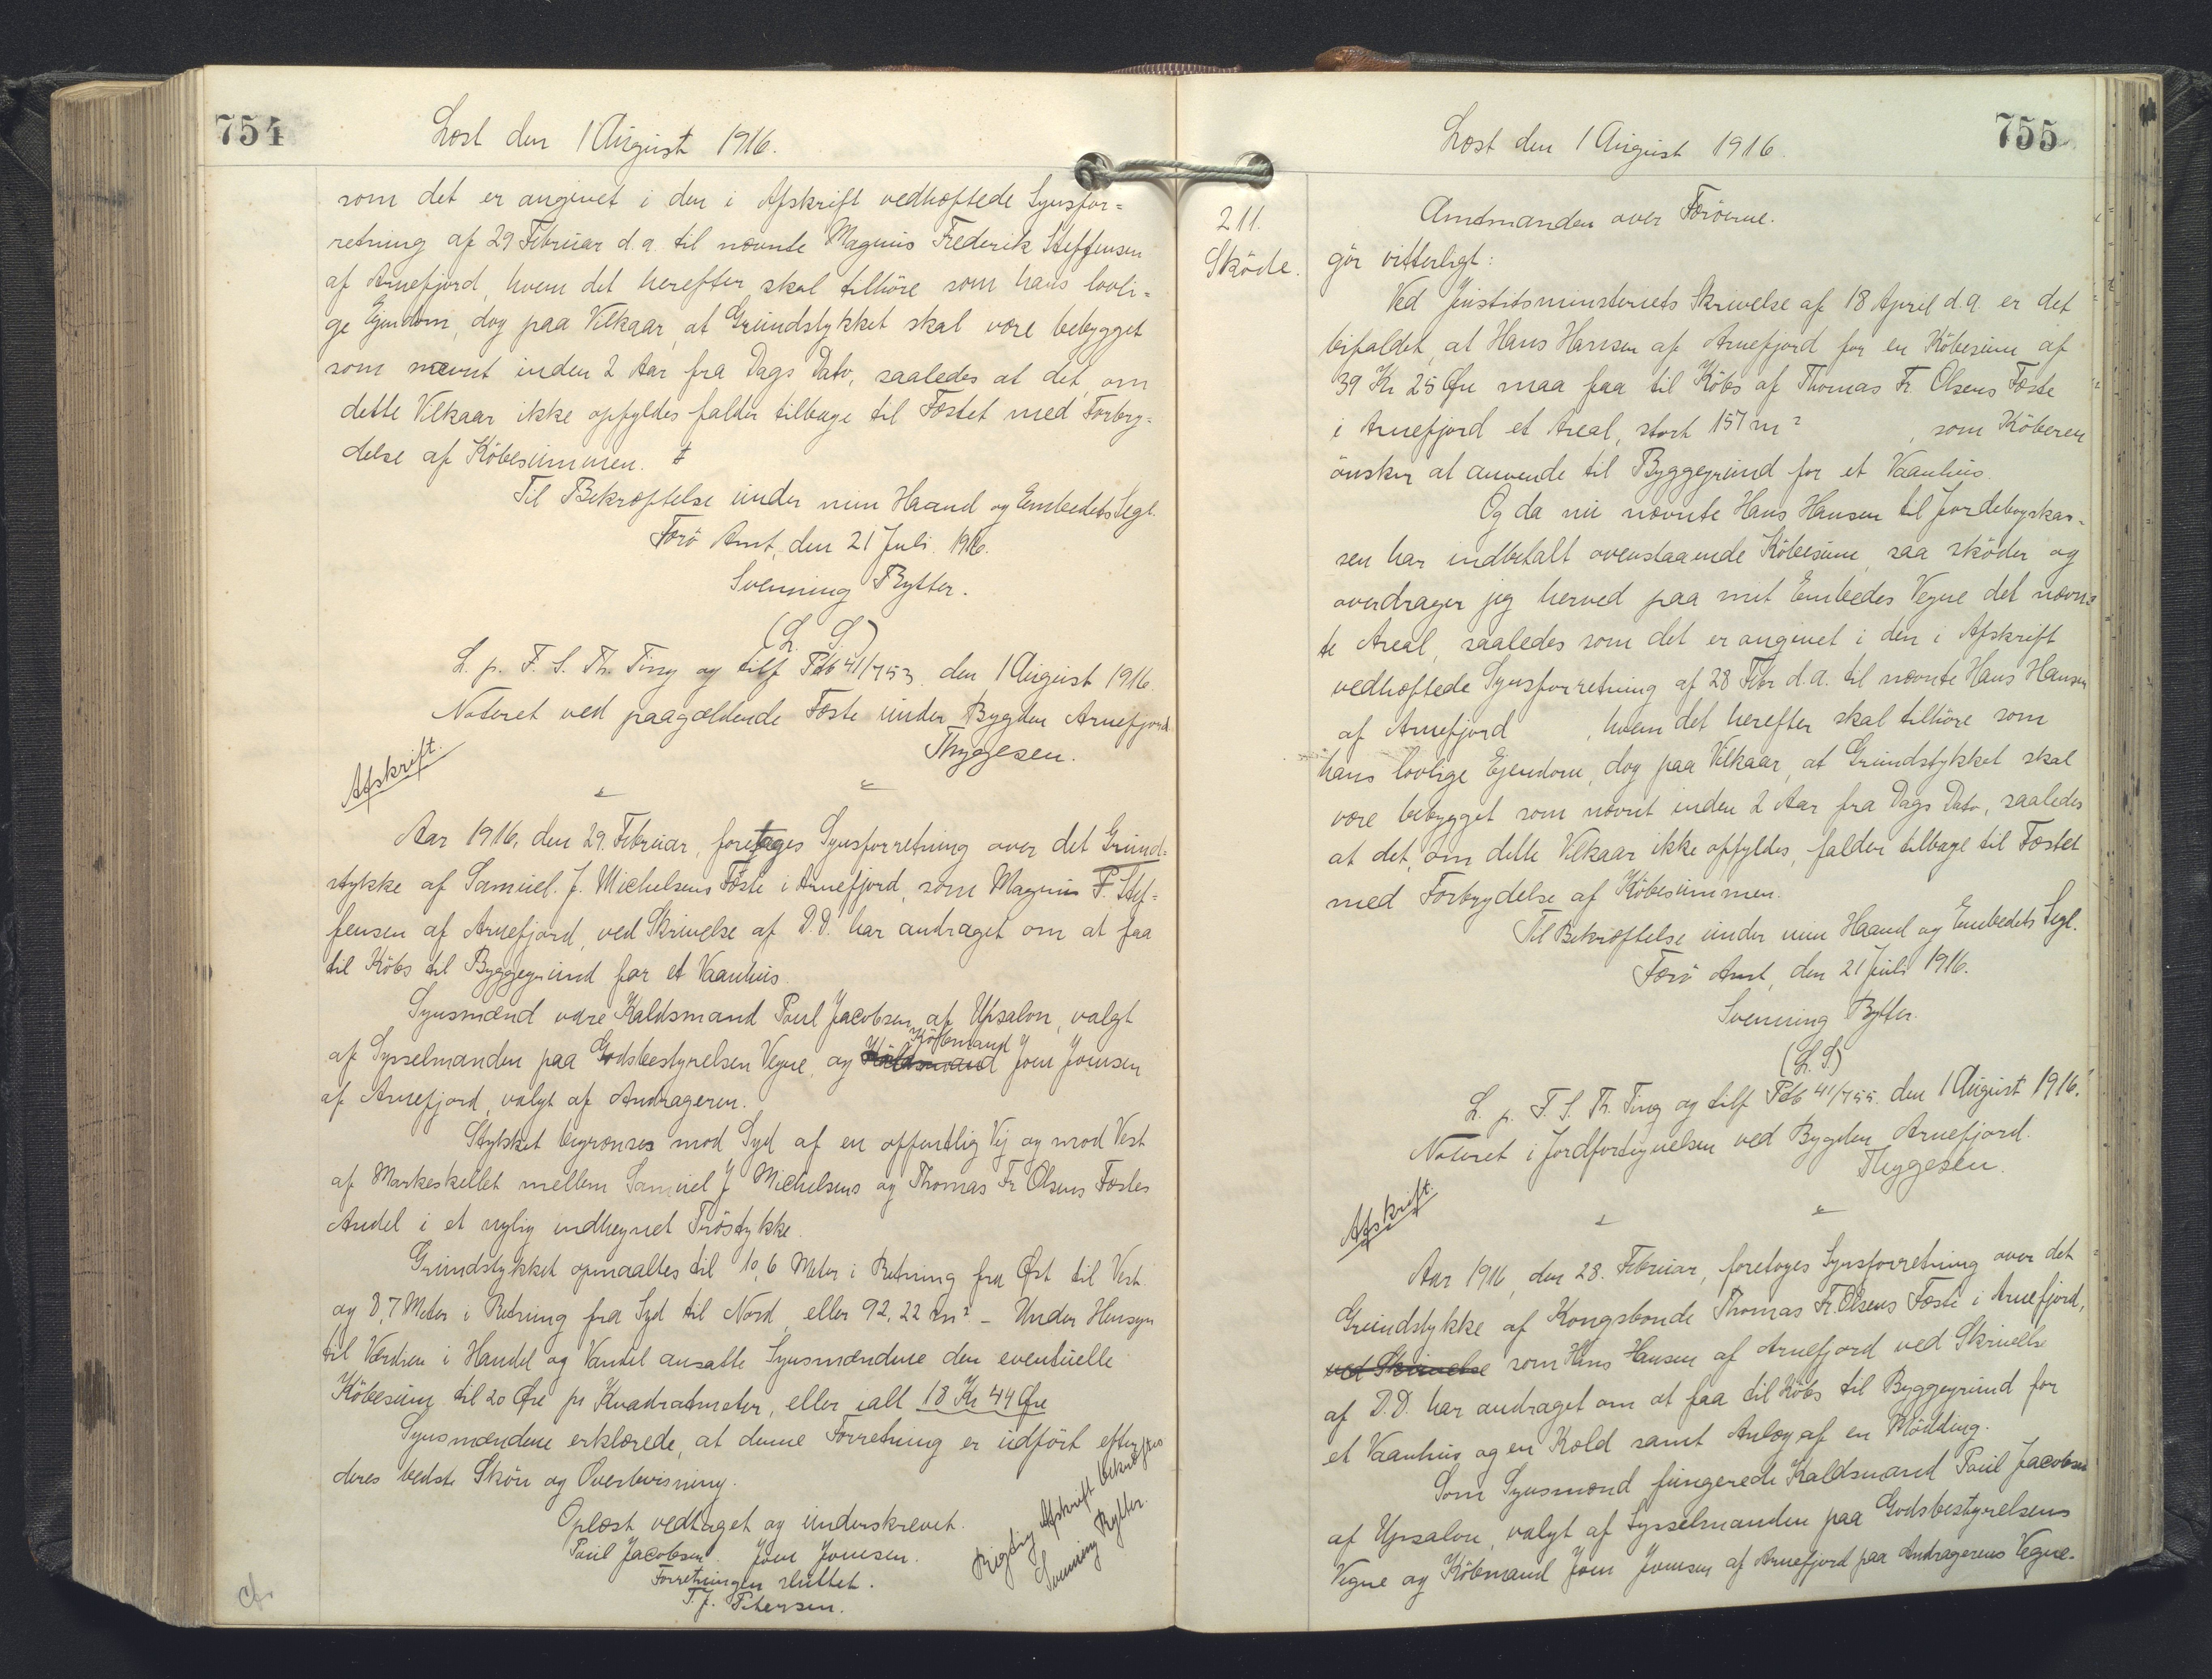 754
Læst den 1 August 1916.
som det er angivet i den i Afskrift vedhæftede Synsfor=
retning af 29 Februar d.a. til nævnte Magnus Frederik Steffensen
af Arnefjord, hvem det herefter skal tilhöre som hans lovli=
ge Ejendom, dog paa Vilkaar, at Grundstykket skal være bebygget
som nævnt inden 2 Aar fra Dags Dato, saaledes at det, om
dette Vilkaar ikke opfyldes falder tilbage til Fæstet med Forbry=
delse af Köbesummen.
Til Bekræftelse under min Haand og Embedets Segl.
Færö Amt, den 21 Juli 1916.
Svenning Rytter.
(L. S.)
L. p. F. S. Th. Ting og tilf Pdb 41/753 den 1 August 1916.
Noteret ved paagældende Fæste under Bygden Arnefjord.
Thygesen.
Afskrift.
Aar 1916, den 29. Februar, foretages Synsforretning over det Grund=
stykke af Samuel. J. Michelsens Fæste i Arnefjord, som Magnus F. Stef=
fensen af Arnefjord, ved Skrivelse af D.D. har andraget om at faa
til Köbs til Byggegrund for et Vaanhus.
Synsmænd vare Kaldsmand Poul Jacobsen af Upsalon, valgt
af Sysselmanden paa Godsbestyrelsen Vegne, og Köbmand Joen Joensen
af Arnefjord, valgt af Andrageren.
Stykket begrænses mod Syd af en offentlig Vej og mod Vest
af Markeskellet mellem Samuel J Michelsens og Thomas Fr Olsens Fæstes
Andel i et nylig indhegnet Tröstykke.
Grundstykket opmaaltes til 10,6 Meter i Retning fra Øst til Vest
og 8,7 Meter i Retning fra Syd til Nord, eller 92,22 m² - Under Hensyn
til Værdien i Handel og Vandel ansatte Synsmændene den eventuelle
Köbesum til 20 Øre pr Kvadratmeter, eller ialt 18 Kr 44 Øre
Synsmændene erklærede, at denne Forretning er udfört efter
deres bedste Skön og Overbevisning.
Oplæst vedtaget og underskrevet.
Poul Jacobsen. Joen Joensen.
Forretningen sluttet.
T. J. Petersen.
Rigtig Afskrift bekræftes
Svenning Rytter.
755
Læst den 1 August 1916
211.
Sköde.
Amtmanden over Færöerne.
gör vitterligt:
Ved Justitsministeriets Skrivelse af 18 April d.a. er det
bifaldet, at Hans Hansen af Arnefjord for en Köbesum af
39 Kr 25 Øre maa faa til Köbs af Thomas Fr. Olsens Fæste
i Arnefjord et Areal, stort 157 m², som Köberen
önsker at anvende til Byggegrund for et Vaanhus.
Og da nu nævnte Hans Hansen til Jordebogskas=
sen har indbetalt ovenstaaende Köbesum, saa sköder og
overdrager jeg herved paa mit Embedes Vegne det nævn=
te Areal, saaledes som det er angivet i den i Afskrift
vedhæftede Synsforretning af 28 Febr d.a. til nævnte Hans Hansen
af Arnefjord, hvem det herefter skal tilhöre som
hans lovlige Ejendom, dog paa Vilkaar, at Grundstykket skal
være bebygget som nævnt inden 2 Aar fra Dags Dato, saaledes
at det, om dette Vilkaar ikke opfyldes, falder tilbage til Fæstet
med Forbrydelse af Köbesummen.
Til Bekræftelse under min Haand og Embedets Segl.
Færö Amt, den 21 Juli 1916.
Svenning Rytter.
(L. S)
L. p. F. S. Th. Ting og tilf Pdb 41/755. den 1 August 1916.
Noteret i Jordfortegnelsen ved Bygden Arnefjord.
Thygesen.
Afskrift.
Aar 1916, den 28. Februar, foretoges Synsforretning over det
Grundstykke af Kongsbonde Thomas Fr. Olsens Fæste i Arnefjord,
ved Skrivelse som Hans Hansen af Arnefjord ved Skrivelse
af D.D. har andraget om at faa til Köbs til Byggegrund for
et Vaanhus og en Kold samt Anlæg af en Mödding.
Som Synsmænd fungerede Kaldsmand Poul Jacobsen
af Upsalon, valgt af Sysselmanden paa Godsbestyrelsens
Vegne og Köbmand Joen Joensen af Arnefjord paa Andragerens Vegne.